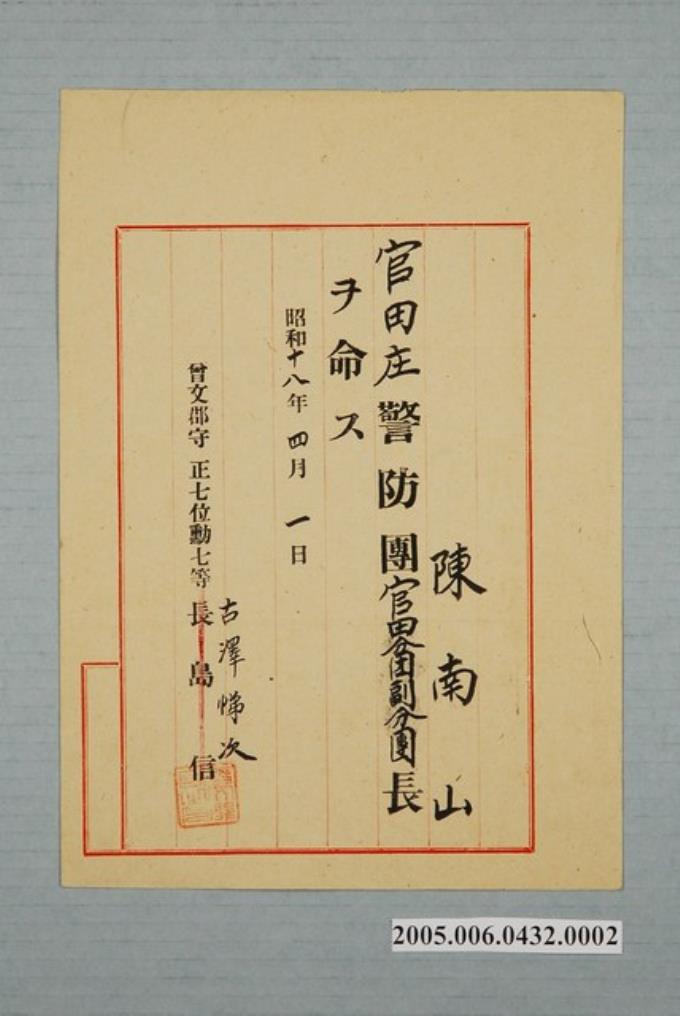 陳南山
官田庄警防團官田分団副分團長
ヲ命ス
昭和十八年四月一日
古澤悌次
曾文郡守 正七位勳七等 長島 信
2005.006.0432.0002